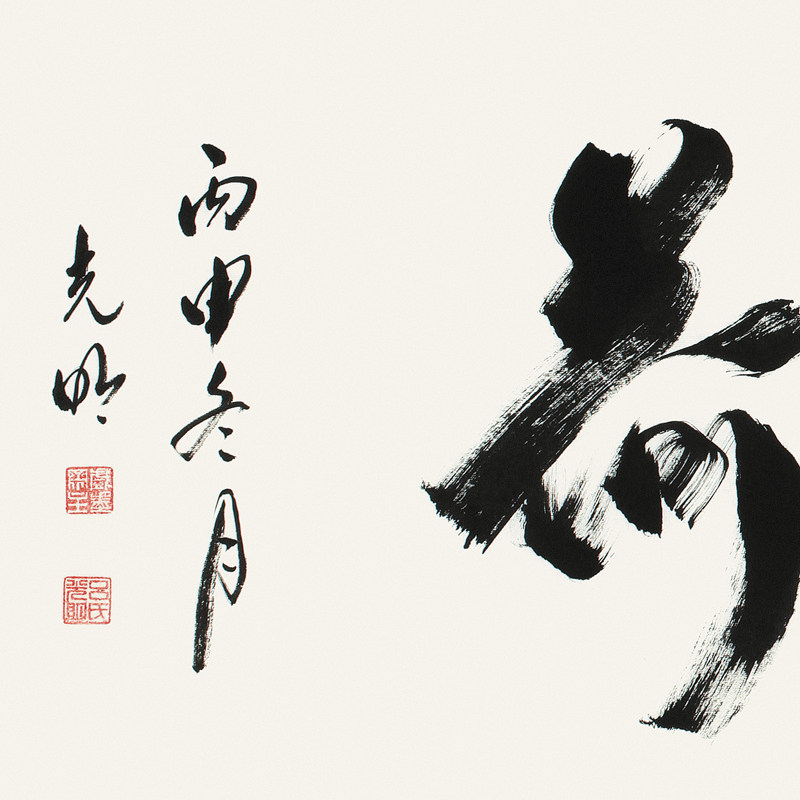 荷
丙申冬月
光明